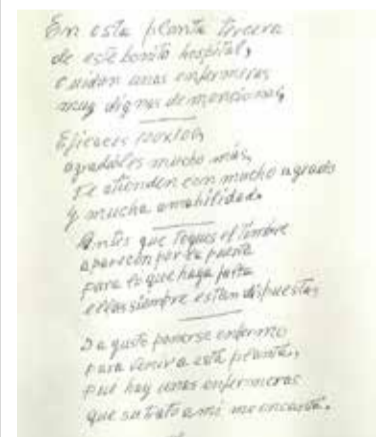 En esta planta tercera
de este bonito hospital,
cuidan unas enfermeras
muy dignas de mencionar,
Eficaces 100x100,
agradables mucho más,
Te atienden con mucho agrado
y mucha amabilidad.
Antes que toques el timbre
aparecen por la puerta
para lo que haga falta
ellas siempre estan dispuestas,
Da gusto ponerse enfermo
para venir a esta planta,
que hay unas enfermeras
que su trato a mi me encanta.